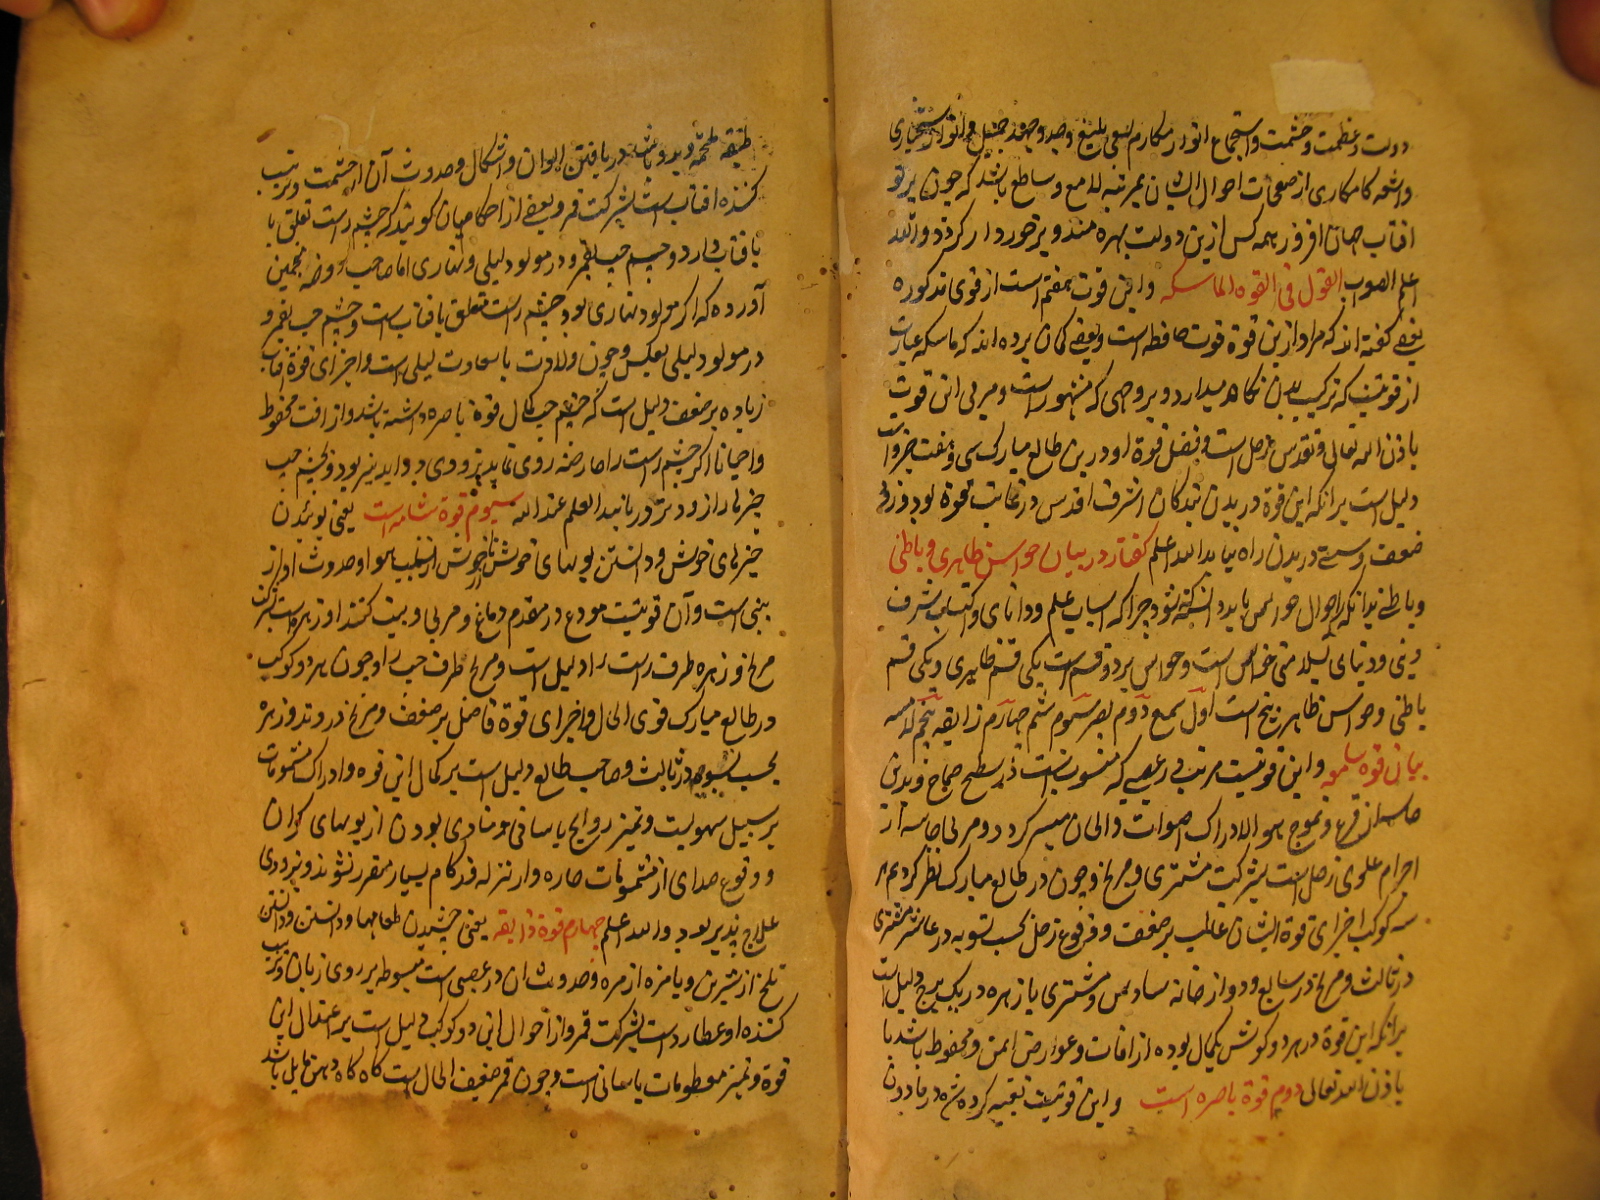 دولت و عظمت و حشمت و استجماع انوار مکارم بسعی بلیغ و جد و جهد جمیل و انوار بختیاری
و اشعه کامکاری از صفحات احوال ایشان بمرتبه لامع و ساطع باشد که چون پرتو
افتاب جهان افروز همه کس ازین دولت بهره مند و برخوردار کردد والله
اعلم الصواب القول فی القوه الماسکه و این قوت هفتم است از قوی مذکوره
بعضی کفته اند که مراد ازین قوة قوت حافظه است و بعضی کمان برده اند که ماسکه عبارت
از قوتیست که ترکیب بدن نکاه میدارد و بر وجهی که مشهور است و مربی این قوت
باذن الله تعالی و تقدس زحل است و فضل قوة او درین طالع مبارک سی و هفت جزو است
دلیل است برانکه این قوة در بدن بندکان اشرف اقدس در غایت قوة بود و زود
ضعف و سستی در بدن راه نیابد والله اعلم کفتار در بیان حواس ظاهری و باطنی
و باطنی بدانکه احوال حواس باید دانسته شود چرا که اسباب علم و دانای و اکتساب شرف
دینی و دنیای بسلامتی حواس است و حواس بر دو قسم است یکی قسم ظاهری و یکی قسم
باطنی و حواس ظاهر پنج است اول سمع دوم بصر سیوم شم چهارم ذایقه پنجم لامسه
بیان قوه سامعه و این قوتیست مرتب در عصبی که منسوبست در سطح صماخ و بدین
حاسه از قرع و تموج هوا ادراک اصوات و الحان میسر کردد و مربی حاسه از
اجرام علوی زحل است بشرکت مشتری و مریخ و چون در طالع مبارک نظر کردیم هر
سه کوکب اجزای قوة ایشان غالب بر ضعف و وقوع زحل بحسب تسویه در عاشر و مشتری
در ثالث و مریخ در سابع و دو از خانه سادس و مشتری با زهره در یک برج دلیل است
برانکه این قوة در هر دو کوش بکمال بوده از افات و عوارض ایمن و محفوظ باشد با
باذن الله تعالی دوم قوة باصره است و این قوتیست تعبیه کرده شده در مادون
طبقه ملتحمه دیده باشد دریافتن الوان و اشکال و حدوث آن از چشمت و تربیت
کننده افتاب است بشرکت قمر و بعضی از احکامیان کویند که چشم راست تعلق با
بافتاب دارد و چشم چپ بقمر و در مولود لیلی و نهاری اما صاحب روضة المنجمین
آورده که اکر مولود نهاری بود چشم راست تعلق بافتاب است و چشم چپ بقمر و
در مولود لیلی بعکس و چون ولادت با سعادت لیلی است و اجزای قوة افتاب
زیاده بر ضعف دلیل است که چشم چپ کمال قوة باصره داشته باشد و از افت محفوظ
و احیانا اکر چشم راست را عارضه روی نماید بزودی دوا پذیر بود و بچشم چپ
چیزها را از دورتر دریابند العلم عند الله سیوم قوة شامه است یعنی بوئیدن
چیزهای خوش و دانستن بویهای خوش از ناخوش از نسایم هوا و حدوث او از
بینی است و آن قوتیست مودع در مقدم دماغ و مربی و تربیت کننده او زهره است بشرکت
مریخ و زهره طرف راست را دلیل است و مریخ طرف چپ را و چون هر دو کوکب
در طالع مبارک قوی الحال و اجزای قوة فاضل بر ضعف و مریخ در وتد و زهره
بحسب تسویه در ثالث و صاحب طالع دلیل است بر کمال این قوه و ادراک مشمومات
بر سبیل سهولت و تمیز روایح باسانی و متاذی بودن از بویهای کران
و وقوع صداع از مشمومات حاره و از نزله و زکام بسیار مقرر نشوند و بزودی
علاج پذیر بود والله اعلم چهارم قوة ذایقه یعنی چشیدن طعامها و دانستن
تلخ از شیرین و بامزه از بی مزه و حدوث ان در عصبی است مبسوطه بر روی زبان و تربیت
کننده او عطارد است بشرکت قمر و از احوال این دو کوکب دلیل است بر اعتدال این
قوة و تمیز مطعومات باسانی است و چون قمر ضعیف الحال است کاه کاه دهن مایل باشد